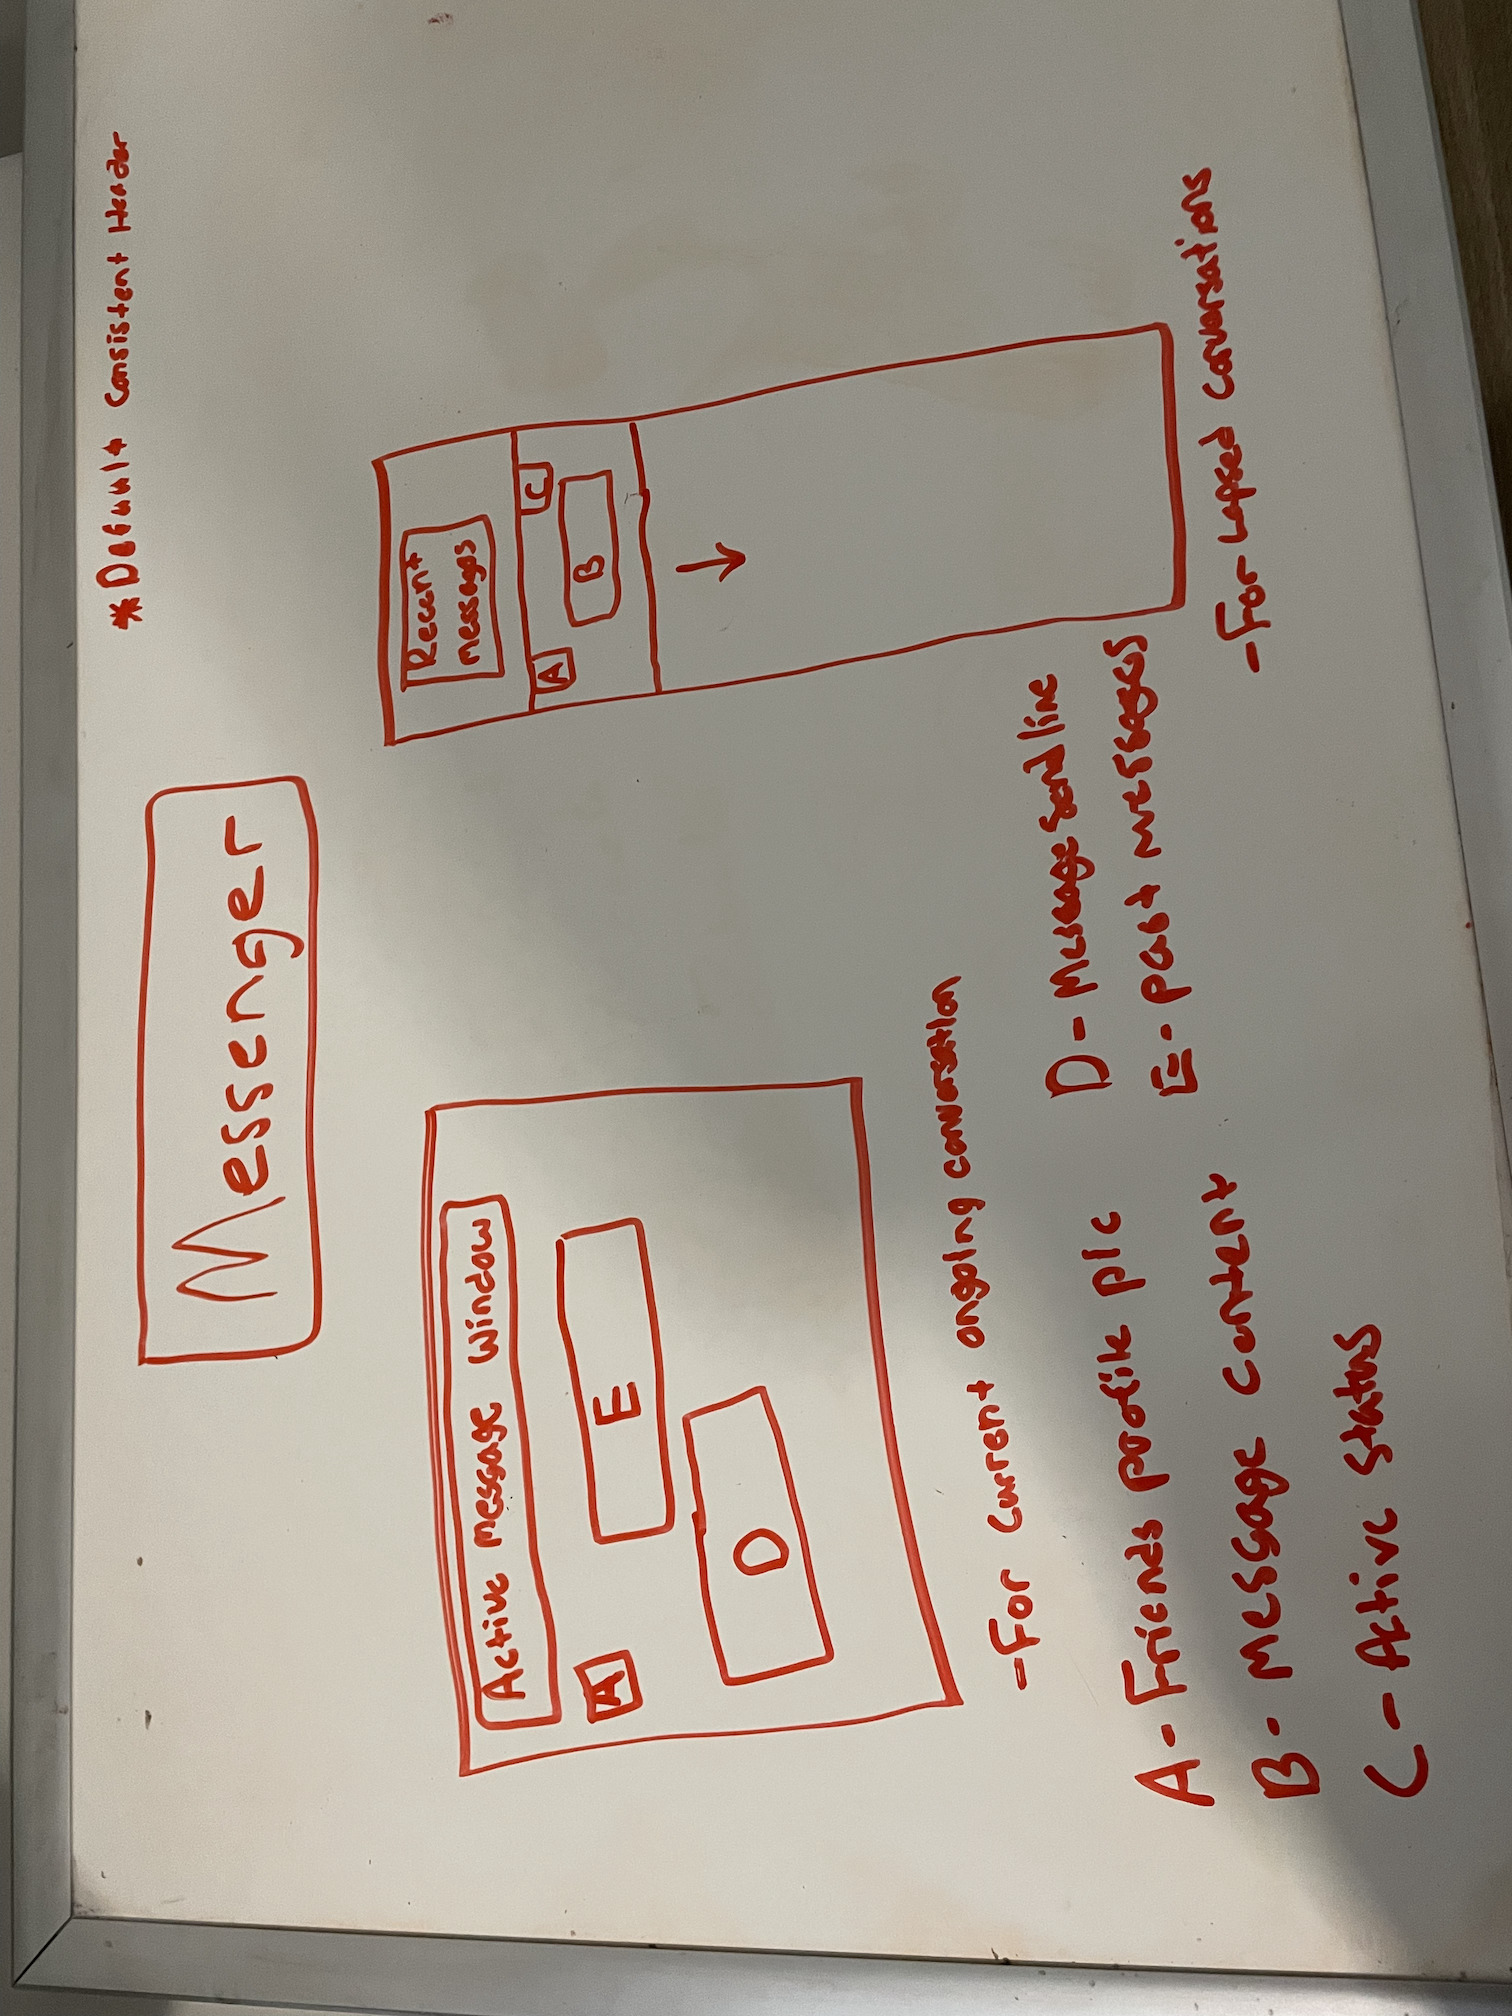 *Default Consistent Header
Messenger
Active message Window
A
E
D
-For current ongoing conversation
Recent
messages
A
C
B
-For Lapsed conversations
A-Friends profile pic
B-Message content
C-Active status
D-Message Send line
E-past messages